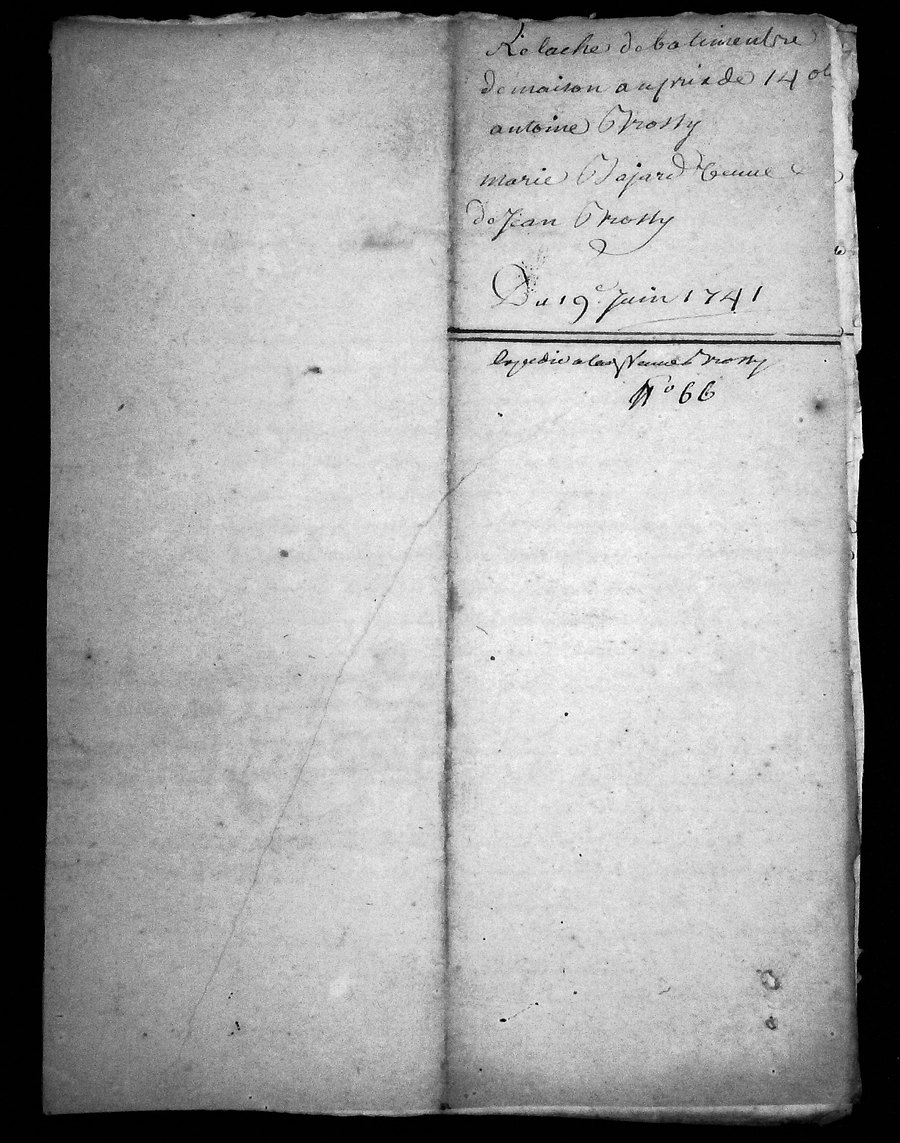 Relache de batiment
de maison au prix de 14
antoine Brossy
marie Bajard veuve
de Jean Brossy
Du 19e. Juin 1741
Expedié a la veuve Brossy
No 66